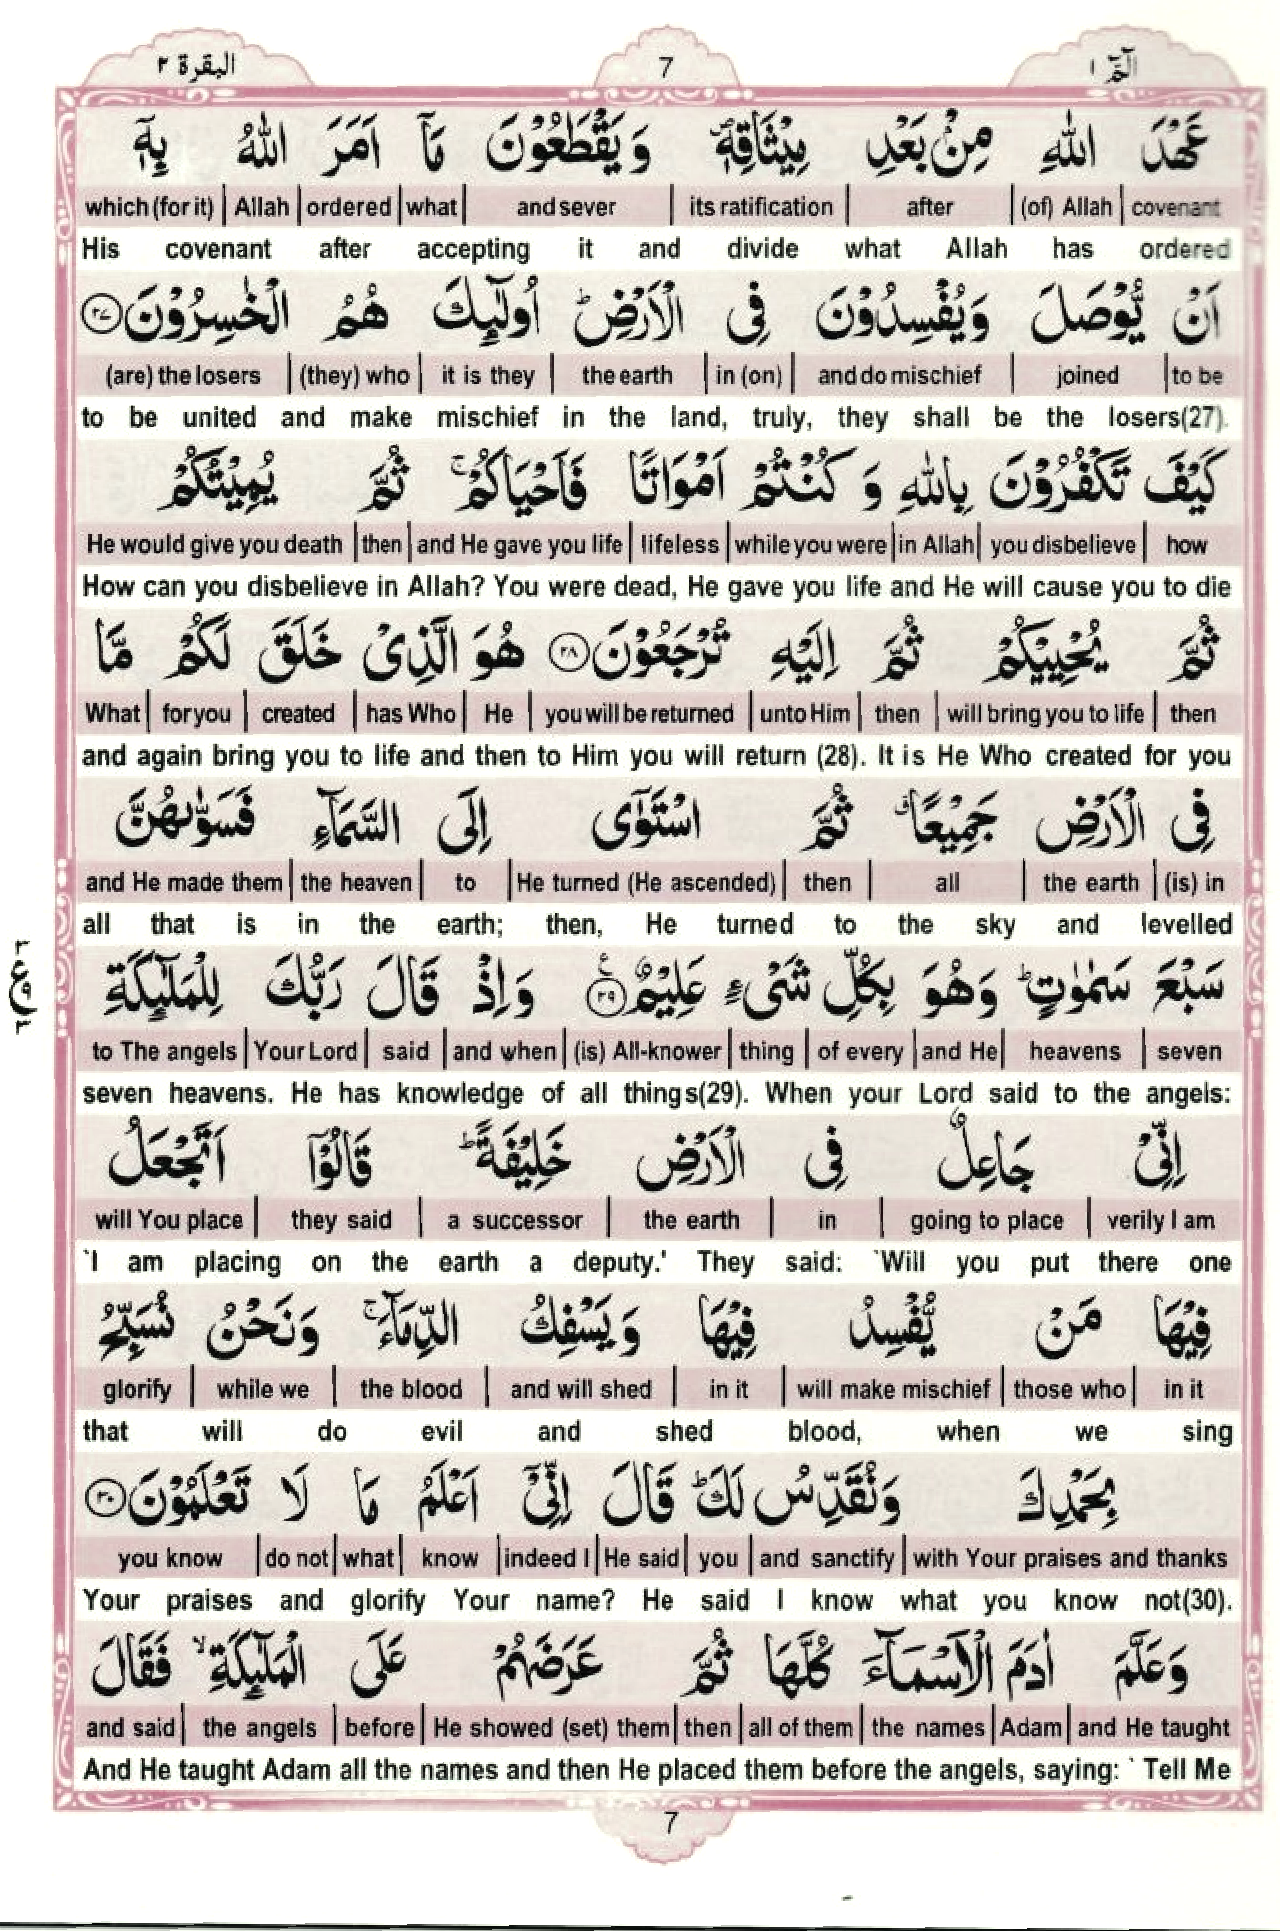 البقرة ٢
7
الٓمّٓ ١
عَهْدَ اللّٰهِ مِنْۢ بَعْدِ مِيْثَاقِهٖ۪ وَيَقْطَعُوْنَ مَاۤ اَمَرَ اللّٰهُ بِهٖۤ
which (for it) | Allah | ordered | what | and sever | its ratification | after | (of) Allah | covenant
His covenant after accepting it and divide what Allah has ordered
اَنْ يُّوْصَلَ وَيُفْسِدُوْنَ فِى الْاَرْضِ ؕ اُولٰٓئِكَ هُمُ الْخٰسِرُوْنَ ۝٢٧
(are) the losers | (they) who | it is they | the earth | in (on) | and do mischief | joined | to be
to be united and make mischief in the land, truly, they shall be the losers(27).
كَيْفَ تَكْفُرُوْنَ بِاللّٰهِ وَ كُنْتُمْ اَمْوَاتًا فَاَحْيَاكُمْ ۚ ثُمَّ يُمِيْتُكُمْ
He would give you death | then | and He gave you life | lifeless | while you were | in Allah | you disbelieve | how
How can you disbelieve in Allah? You were dead, He gave you life and He will cause you to die
ثُمَّ يُحْيِيْكُمْ ثُمَّ اِلَيْهِ تُرْجَعُوْنَ ۝٢٨ هُوَ الَّذِىْ خَلَقَ لَكُمْ مَّا
What | for you | created | has Who | He | you will be returned | unto Him | then | will bring you to life | then
and again bring you to life and then to Him you will return (28). It is He Who created for you
فِى الْاَرْضِ جَمِيْعًا ۗ ثُمَّ اسْتَوٰۤى اِلَى السَّمَآءِ فَسَوّٰىهُنَّ
and He made them | the heaven | to | He turned (He ascended) | then | all | the earth | (is) in
all that is in the earth; then, He turned to the sky and levelled
سَبْعَ سَمٰوٰتٍ ؕ وَهُوَ بِكُلِّ شَىْءٍ عَلِيْمٌ ۝٢٩ وَاِذْ قَالَ رَبُّكَ لِلْمَلٰٓئِكَةِ
to The angels | Your Lord | said | and when | (is) All-knower | thing | of every | and He | heavens | seven
seven heavens. He has knowledge of all things(29). When your Lord said to the angels:
اِنِّىْ جَاعِلٌ فِى الْاَرْضِ خَلِيْفَةً ؕ قَالُوْۤا اَتَجْعَلُ
will You place | they said | a successor | the earth | in | going to place | verily I am
`I am placing on the earth a deputy.' They said: `Will you put there one
فِيْهَا مَنْ يُّفْسِدُ فِيْهَا وَيَسْفِكُ الدِّمَآءَ ۚ وَنَحْنُ نُسَبِّحُ
glorify | while we | the blood | and will shed | in it | will make mischief | those who | in it
that will do evil and shed blood, when we sing
بِحَمْدِكَ وَنُقَدِّسُ لَكَ ؕ قَالَ اِنِّىْۤ اَعْلَمُ مَا لَا تَعْلَمُوْنَ ۝٣٠
you know | do not | what | know | indeed I | He said | you | and sanctify | with Your praises and thanks
Your praises and glorify Your name? He said I know what you know not(30).
وَعَلَّمَ اٰدَمَ الْاَسْمَآءَ كُلَّهَا ثُمَّ عَرَضَهُمْ عَلَى الْمَلٰٓئِكَةِ ۙ فَقَالَ
and said | the angels | before | He showed (set) them | then | all of them | the names | Adam | and He taught
And He taught Adam all the names and then He placed them before the angels, saying: ` Tell Me
7